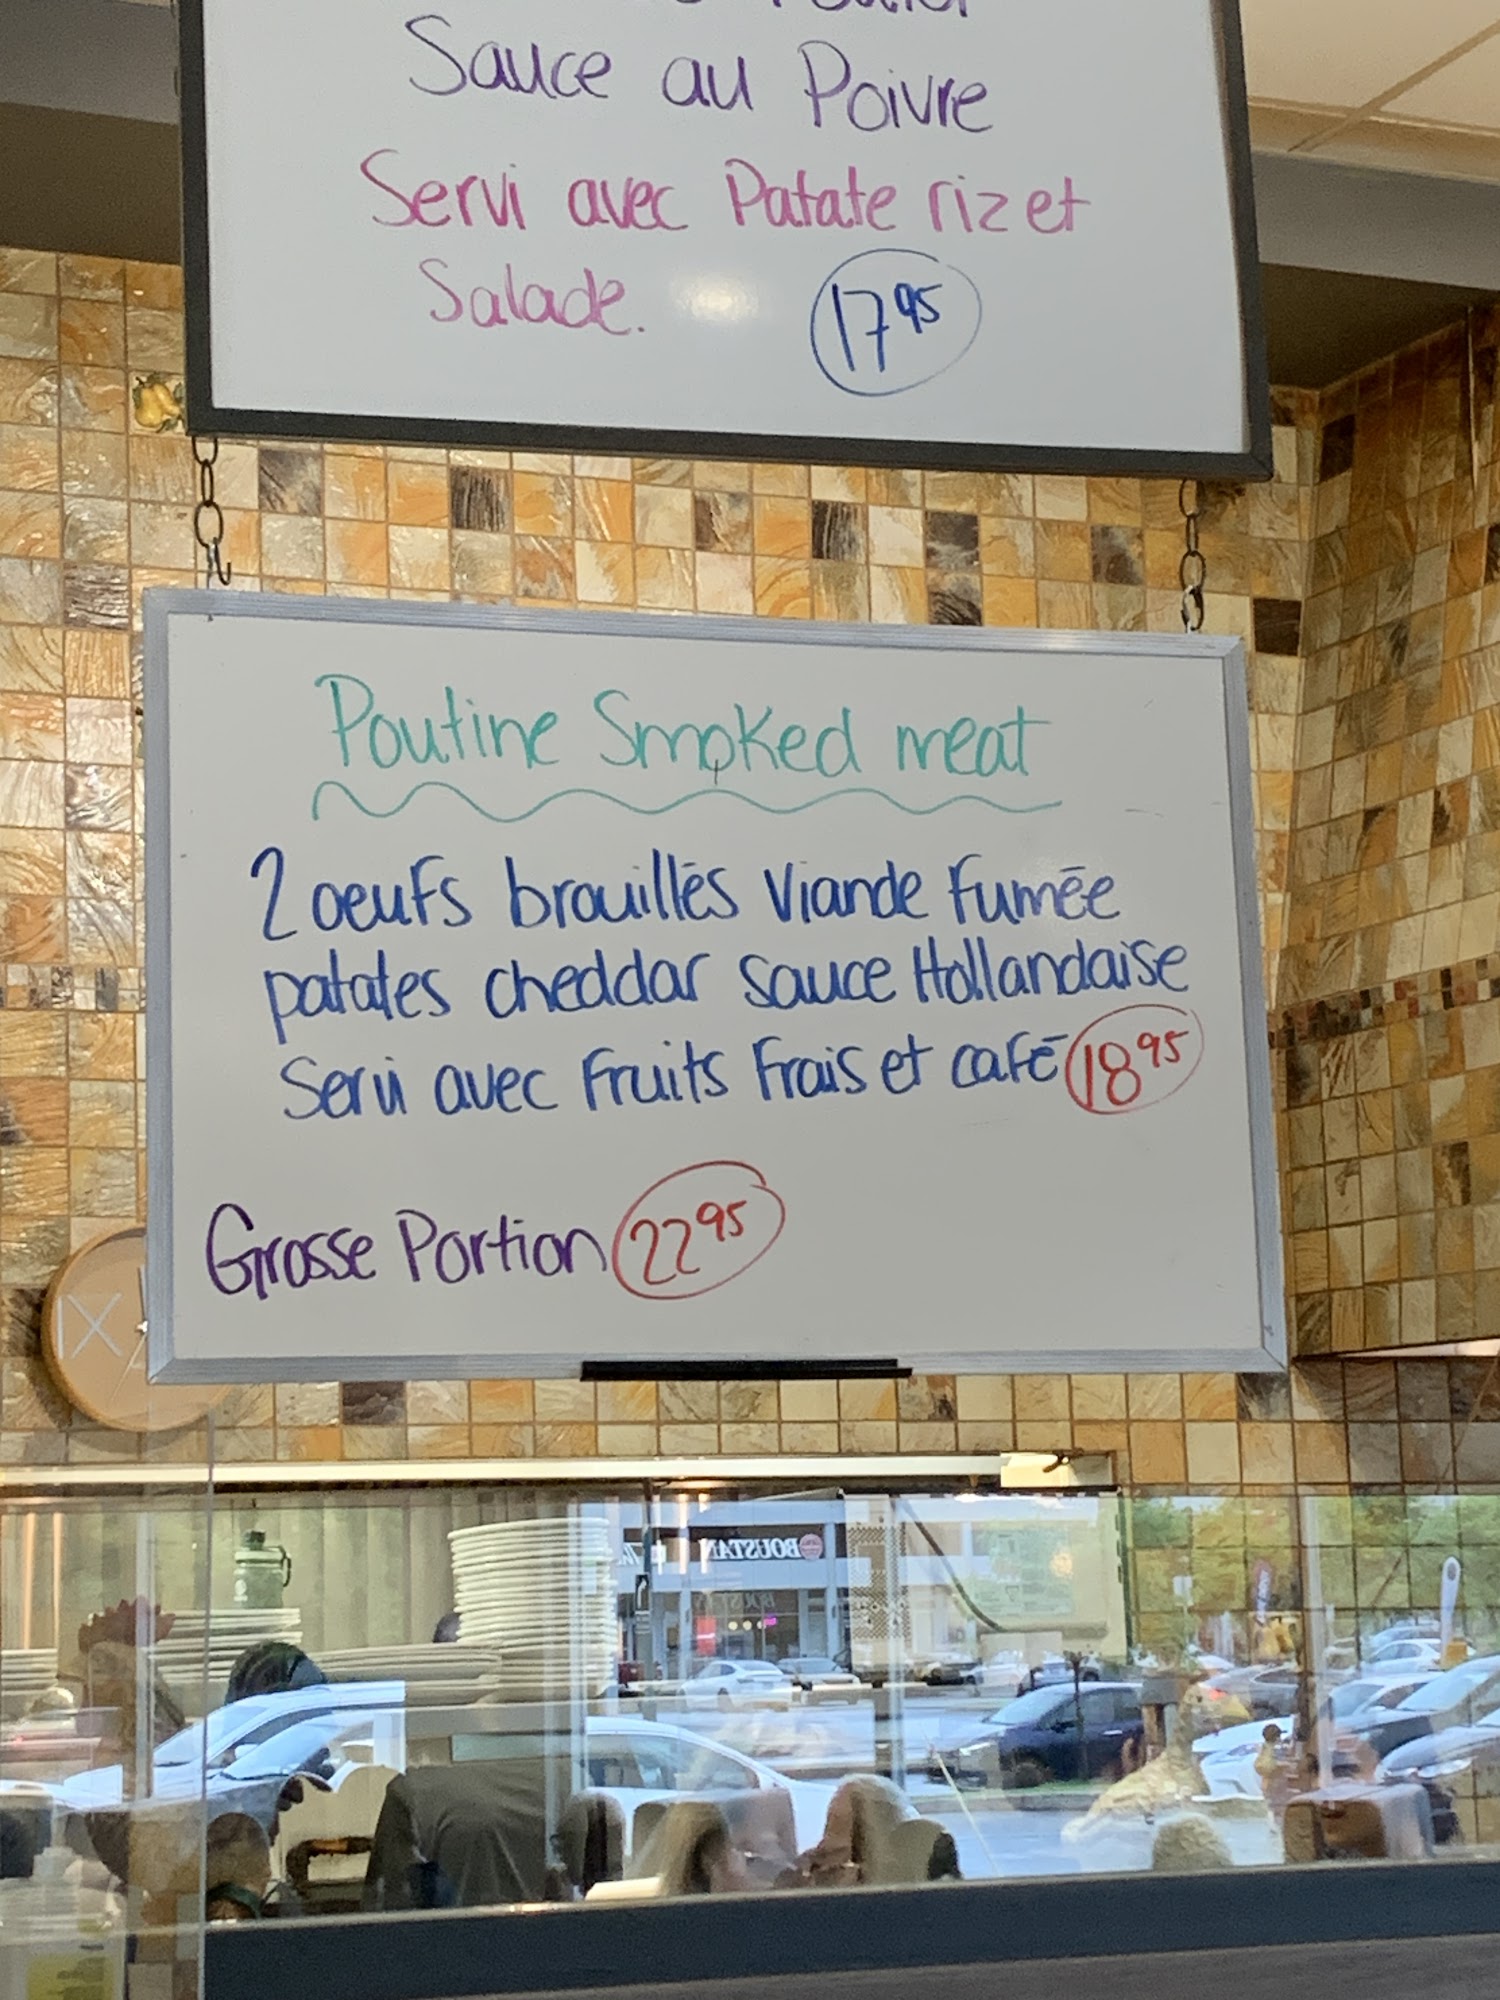 Sauce au Poivre
Servi avec Patate riz et
Salade. 17 95
Poutine Smoked meat
2 oeufs brouillés viande fumée
patates cheddar sauce Hollandaise
Servi avec fruits frais et café 18 95
Grosse Portion 22 95
IX
BOUSTAN